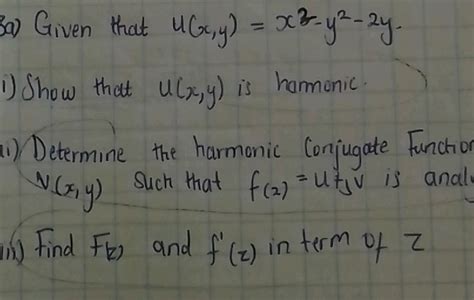 3a) Given that u(x,y) = x²-y²-2y.
i) Show that u(x,y) is harmonic.
ii) Determine the harmonic Conjugate Function
V(x,y) Such that f(z) = u+jv is analy
iii) Find F(z) and f'(z) in term of Z